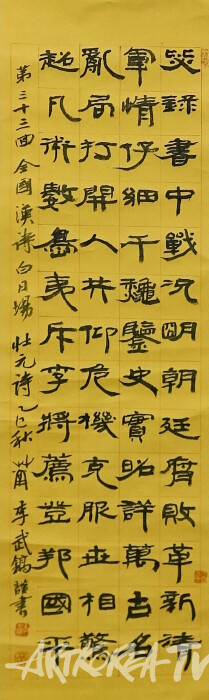 毖錄書中戰況明朝廷腐敗革新清
軍情仔細千龝鑒史實昭詳萬古名
亂局打開人共仰危機克服世相驚
超凡術數島夷斥李將薦登邦國平
第三十三回全國漢詩白日場 壯元詩 乙巳秋 李武鎬謹書
ARTKOREA TV